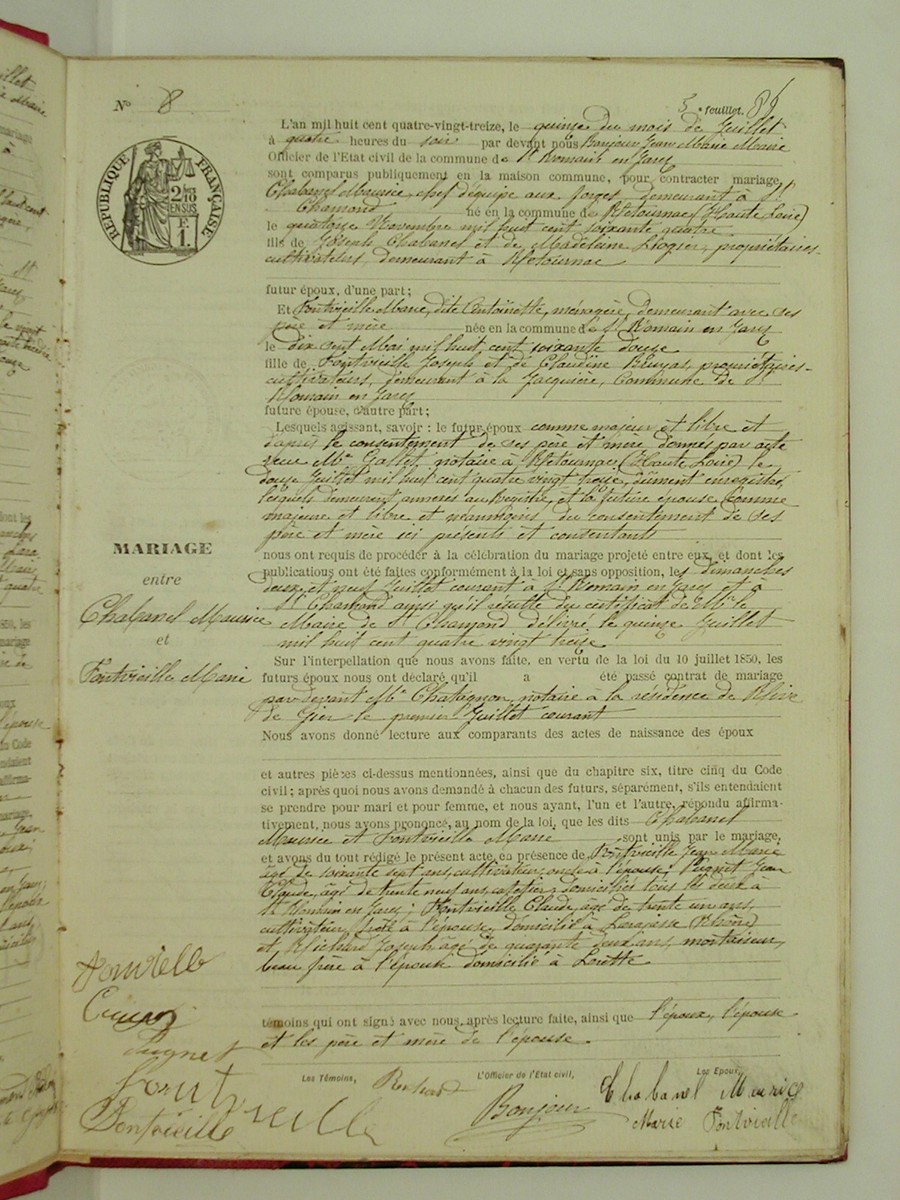 No 8
5e feuillet. 85
RÉPUBLIQUE FRANÇAISE
2/10
EN SUS
F.
1.
L'an mil huit cent quatre-vingt-treize, le quinze du mois de Juillet
à quatre heures du soir par devant nous Bonjour Jean Marie Maire
Officier de l'Etat civil de la commune de St Romain en Jarez
sont comparus publiquement en la maison commune, pour contracter mariage,
Chabanel Maurice chef d'équipe aux forges demeurant à St
Chamond né en la commune de Retournac (Haute Loire)
le quatorze Novembre mil huit cent soixante quatre
fils de Joseph Chabanel et de Madeleine Liogier, propriétaires-
cultivateurs, demeurant à Retournac
futur époux, d'une part;
Et Fontvieille Marie, dite Antoinette, ménagère, demeurant avec ses
père et mère née en la commune de St Romain en Jarez
le dix sept Mai mil huit cent soixante douze
fille de Fontvieille Joseph et de Claudine Bruyas, propriétaires-
cultivateurs, demeurant à la Jacquière, Commune de St
Romain en Jarez
future épouse, d'autre part;
Lesquels agissant, savoir: le futur époux comme majeur et libre et
d'après le consentement de ses père et mère donnés par acte
reçu Me Gallet, notaire à Retournac (Haute Loire) le
douze Juillet mil huit cent quatre vingt treize, dûment enregistré,
lesquels demeurent annexés au Registre, et la future épouse comme
majeure et libre et néanmoins du consentement de ses
père et mère ici présents et consentants
nous ont requis de procéder à la célébration du mariage projeté entre eux, et dont les
publications ont été faites conformément à la loi et sans opposition, les dimanches
deux et neuf Juillet courant à St Romain en Jarez et à
St Chamond ainsi qu'il résulte du certificat de Mr le
Maire de St Chamond délivré le quinze Juillet
mil huit cent quatre vingt treize
MARIAGE
entre
Chabanel Maurice
et
Fontvieille Marie
Sur l'interpellation que nous avons faite, en vertu de la loi du 10 juillet 1850, les
futurs époux nous ont déclaré qu'il a été passé contrat de mariage
par devant Me Chatagnon, notaire à la résidence de Rive
de Gier le premier Juillet courant
Nous avons donné lecture aux comparants des actes de naissance des époux
et autres pièces ci-dessus mentionnées, ainsi que du chapitre six, titre cinq du Code
civil; après quoi nous avons demandé à chacun des futurs, séparément, s'ils entendaient
se prendre pour mari et pour femme, et nous ayant, l'un et l'autre, répondu affirma-
tivement, nous avons prononcé, au nom de la loi, que les dits Chabanel
Maurice et Fontvieille Marie sont unis par le mariage,
et avons du tout rédigé le présent acte, en présence de Fontvieille Jean Marie
âgé de soixante sept ans, cultivateur, oncle à l'épouse; Pugnet Jean
Claude, âgé de trente neuf ans, cafetier, domiciliés tous les deux à
St Romain en Jarez; Fontvieille Claude, âgé de trente un ans,
cultivateur, frère à l'épouse, domicilié à Larajasse (Rhône)
et Richard Joseph âgé de quarante deux ans, mortaiseur,
beau frère à l'épouse domicilié à Lorette
témoins qui ont signé avec nous, après lecture faite, ainsi que l'époux, l'épouse
et les père et mère de l'épouse.
Les Témoins,
L'Officier de l'Etat civil,
Les Epoux,
Pugnet
Richard
Bonjour
Chabanel Maurice
Marie Fontvieille
Fontvieille